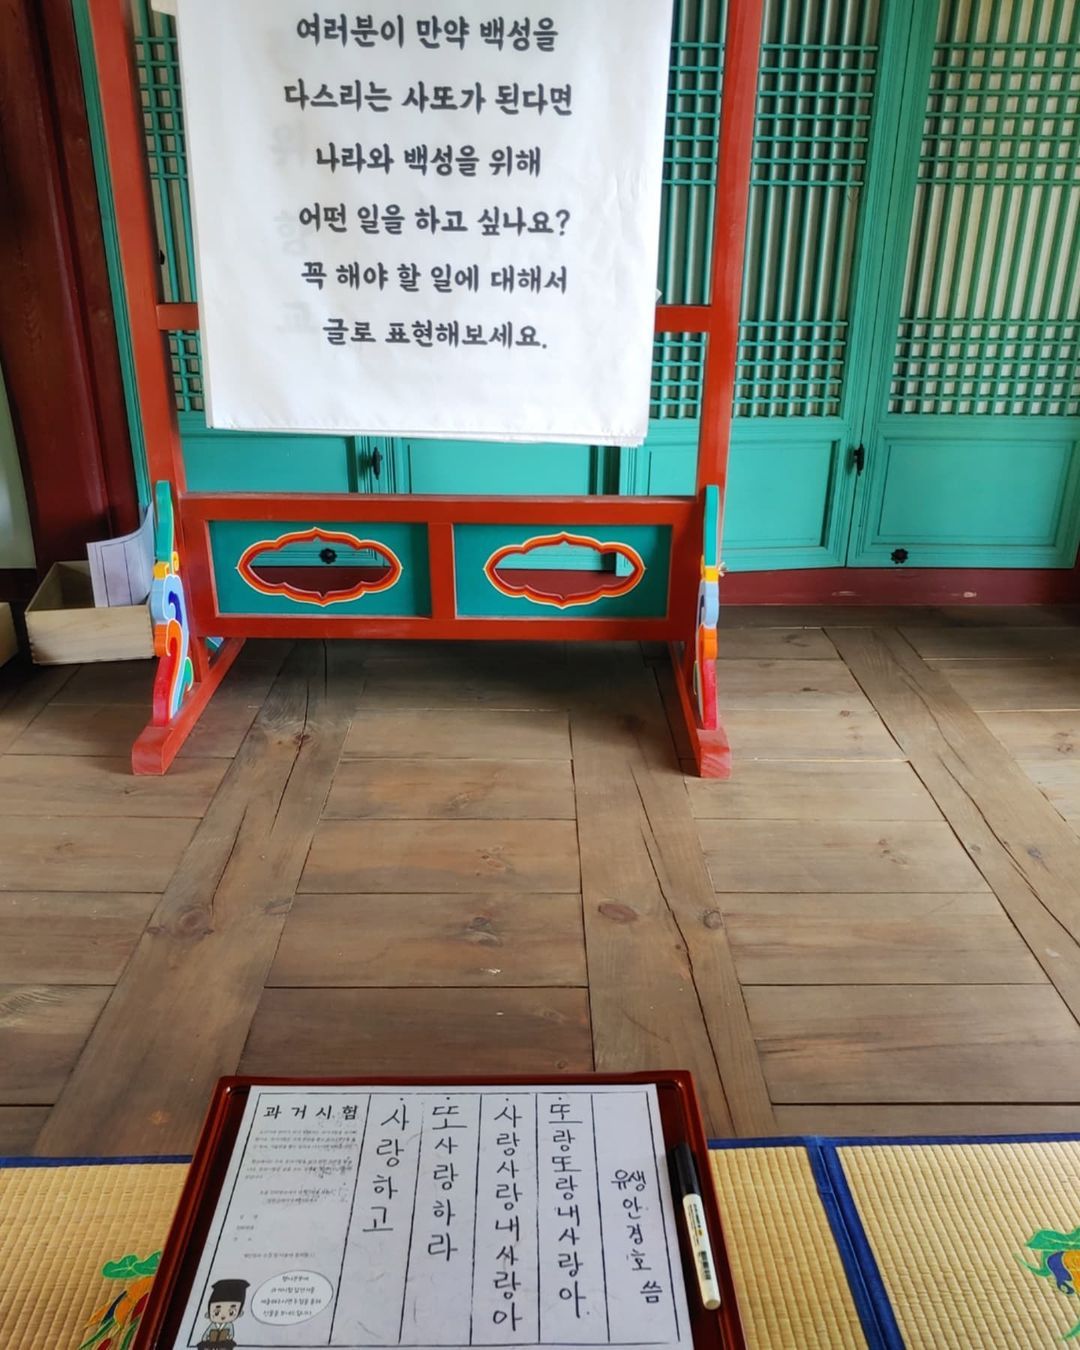 여러분이 만약 백성을
다스리는 사또가 된다면
나라와 백성을 위해
어떤 일을 하고 싶나요?
꼭 해야 할 일에 대해서
글로 표현해보세요.
과거시험
사랑하고
또사랑하라
사랑사랑내사랑아
또랑또랑내사랑아
유생 안경호 씀